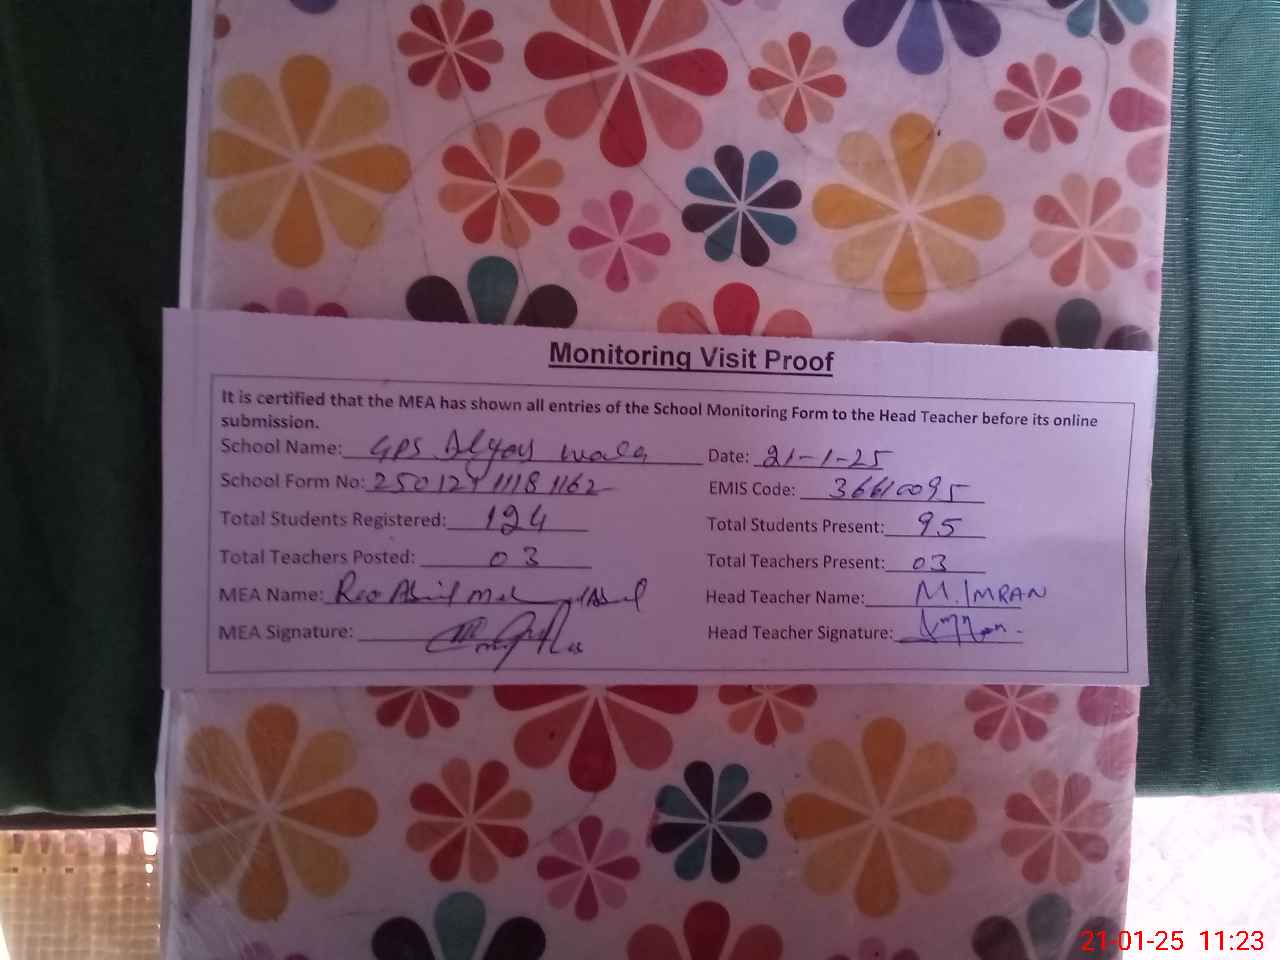 Monitoring Visit Proof
It is certified that the MEA has shown all entries of the School Monitoring Form to the Head Teacher before its online
submission.
School Name: GPS wala Date: 21-1-25
School Form No: EMIS Code: 36610095
Total Students Registered: 124 Total Students Present: 95
Total Teachers Posted: 03 Total Teachers Present: 03
MEA Name: Head Teacher Name: M. IMRAN
MEA Signature: Head Teacher Signature:
21-01-25 11:23